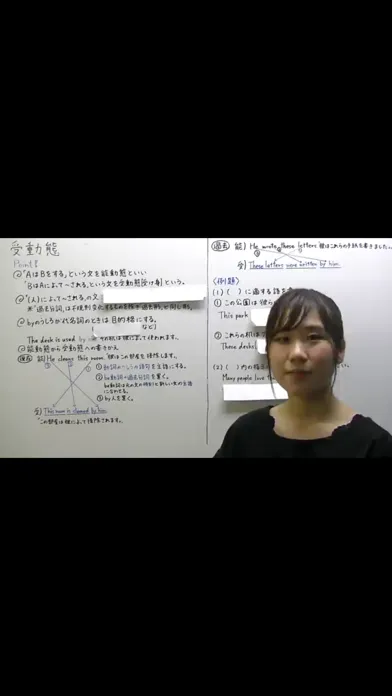 受動態
Point!
◎「AはBをする。」という文を能動態といい
「BはAによって~される。」という文を受動態(受け身)という。
◎「(人)によって~される。」の文
◎byのうしろが代名詞のときは目的格にする。
など)
The desk is used by
◎能動態から受動態への書きかえ
現在 能) He cleans this room. 彼はこの部屋を掃除します。
① 動詞のうしろの語句を主語にする。
② be動詞+過去分詞を置く。
③ by人を置く。
受) This room is cleaned by him.
この部屋は彼によって掃除されます。
過去 能) He wrote these letters. 彼はこれらの手紙を書きました。
受) These letters were written by him.
(例題)
(1) ( )に適する語を
① この公園は彼ら
This park
② これらの机は
These desks
(2) ( )内の指示
Many people love th